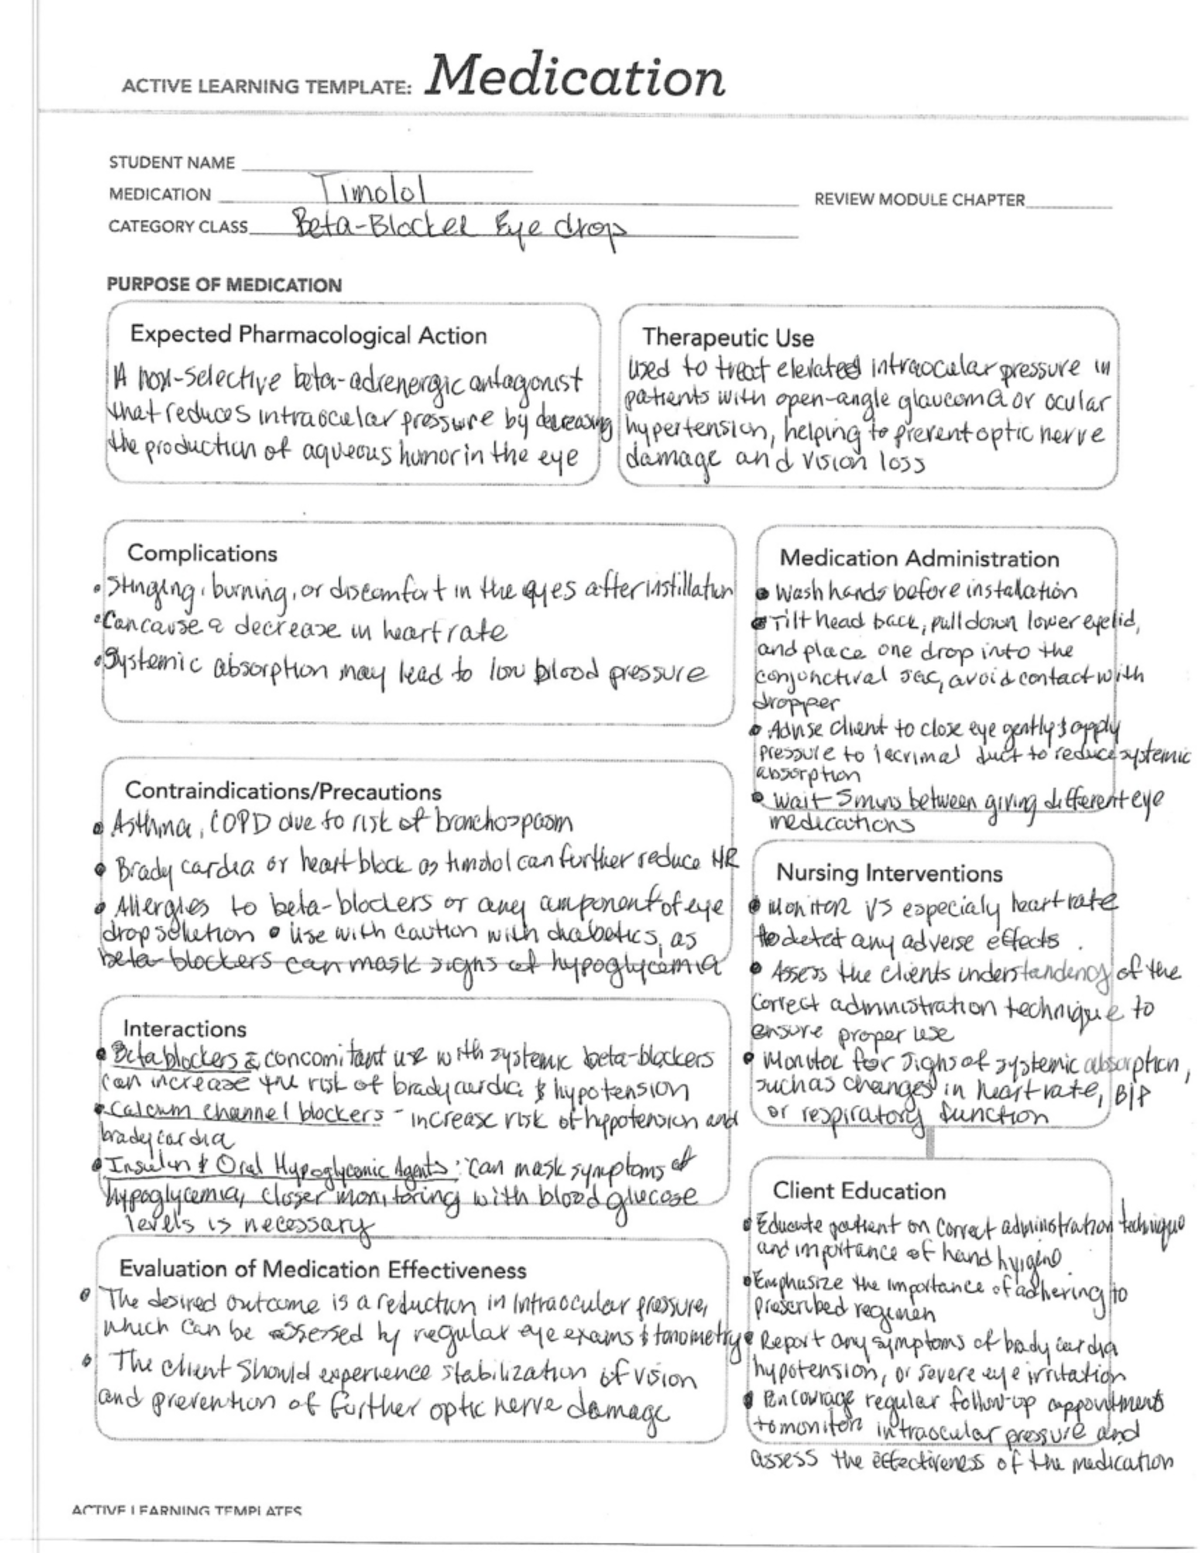 ACTIVE LEARNING TEMPLATE: Medication
STUDENT NAME
MEDICATION Timolol
REVIEW MODULE CHAPTER
CATEGORY CLASS Beta-Blocker Eye drop
PURPOSE OF MEDICATION
Expected Pharmacological Action
A non-selective beta-adrenergic antagonist
that reduces intraocular pressure by decreasing
the production of aqueous humor in the eye
Therapeutic Use
Used to treat elevated intraocular pressure in
patients with open-angle glaucoma or ocular
hypertension, helping to prevent optic nerve
damage and vision loss
Complications
• Stinging, burning, or discomfort in the eyes after instillation
• Can cause a decrease in heart rate
• Systemic absorption may lead to low blood pressure
Medication Administration
• Wash hands before installation
• Tilt head back, pull down lower eyelid,
and place one drop into the
conjunctival sac, avoid contact with
dropper
• Advise client to close eye gently & apply
pressure to lacrimal duct to reduce systemic
absorption
• Wait 5 mins between giving different eye
medications
Contraindications/Precautions
• Asthma, COPD due to risk of bronchospasm
• Brady cardia or heart block as timolol can further reduce HR
• Allergies to beta-blockers or any component of eye
drop solution • Use with caution with diabetics, as
beta-blockers can mask signs of hypoglycemia
Nursing Interventions
• Monitor VS especialy heart rate
to detect any adverse effects.
• Assess the clients understandency of the
correct administration technique to
ensure proper use
• Monitor for signs of systemic absorption,
such as changes in heart rate, B/P
or respiratory function
Interactions
• Beta blockers: concomitant use with systemic beta-blockers
can increase the risk of bradycardia & hypotension
• Calcium channel blockers - increase risk of hypotension and
bradycardia
• Insulin & Oral Hypoglycemic Agents: Can mask symptoms of
hypoglycemia, closer monitoring with blood glucose
levels is necessary
Client Education
• Educate patient on correct administration technique
and importance of hand hygiene
• Emphasize the importance of adhering to
prescribed regimen
• Report any symptoms of brady cardia
hypotension, or severe eye irritation
• Encourage regular follow-up appointments
to monitor intraocular pressure and
assess the effectiveness of the medication
Evaluation of Medication Effectiveness
• The desired outcome is a reduction in intraocular pressure,
which can be assessed by regular eye exams & tonometry
• The client should experience stabilization of vision
and prevention of further optic nerve damage
ACTIVE LEARNING TEMPLATES